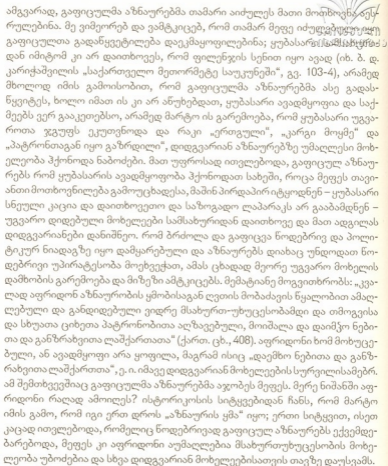 ამგვარად, გაფიცულმა აზნაურებმა თამარი აიძულეს მათი მოთხოვნა ეს-
რულებინა. მე ვიმეორებ და ვამტკიცებ, რომ თამარ მეფე იძულებული
გაფიცულთა გადაწყვეტილება დაეკმაყოფილებინა; ყუბასარი სამსახური-
დან იმიტომ კი არ დაითხოვეს, რომ ფილენჯის სენით იყო (იხ. ბ. დ.
კარიჭაშვილის „საქართველო მეთორმეტე საუკუნეში", გვ. 103-4), არამედ
მხოლოდ იმის გამოისობით, რომ გაფიცულმა აზნაურებმა ასე გადას-
წყვიტეს, ხოლო იმათ ის კი არ აწუხებდათ, ყუბასარი ავადმყოფია და საქ-
მეებს ვერ გააკეთებსო, არამედ მარტო ის გარემოება, რომ ყუბასარი უგვა-
როთა ჯგუფს ეკუთვნოდა და რაკი „ერთგული", „კარგი მოყმე" და
„პატრონთაგან იყო გაზრდილი", დიდგვარიან აზნაურებზე უმაღლესი მოხ-
ელეობა ჰქონოდა ნაბოძები. მათ უფროსად ითვლებოდა, გაფიცულ აზნაუ-
რებს რომ ყუბასარის ავადმყოფობა ჰქონოდათ სახეში, როცა მეფეს თავი-
ანთი მოთხოვნილება გამოუცხადესა, მაშინ პირდაპირ იტყოდნენ – ყუბასარი
სნეული კაცია და დაითხოვეთო და საზოგადო ლაპარაკს არ გააბამდნენ –
უგვარო დიდებული მოხელეები სამსახურიდან დაითხოვე და მათ ადგილას
დიდგვარიანები დანიშნეო. რომ ბრძოლა და გაფიცვა წოდებრივ და პოლი-
ტიკურ ნიადაგზე იყო დამყარებული და აზნაურებს დიახაც უნდოდათ წო-
დებრივი უპირატესობა მოეხვეჭათ, ამას ცხადად მეორე უგვარო მოხელის
დამხობის გარემოება და მიზეზი ამტკიცებს. მემატიანე მოგვითხრობს: „კვა-
ლად აფრიდონ აზნაურობის ყმობისაგან ღვთის მობაძავის წყალობით ამაღ-
ლებული და განდიდებული ვიდრე მსახურთ-უხუცესობამდი და თმოგვისა
და სხუათა ციხეთა პატრონობითა აღზავებული, მოიშალა და დაიმჴო ნები-
თა და განზრახვითა ლაშქართათა" (ქართ. ცხ., 408). აფრიდონი ხომ მოხუცე-
ბული, ან ავადმყოფი არ ყოფილა, მაგრამ ისიც „დაემხო ნებითა და განზ-
რახვითა ლაშქართთა", ე. ი. იმავე დიდგვარიან მოხელეების სურვილისამებრ.
ამ შემთხვევშიაც გაფიცულმა აზნაურებმა აჯობეს მეფეს. მერე ნიშანში აფ-
რიდონი რაღად ამოიღეს? ისტორიკოსის სიტყვებიდან ჩანს, რომ მარტო
იმის გამო, რომ იგი ერთ დროს „აზნაურის ყმა" იყო; ერთი სიტყვით, ისეთ
კაცად ითვლებოდა, რომელიც წოდებრივად გაფიცულ აზნაურებს ექვემდე-
ბარებოდა, მეფეს კი აფრიდონი აუმაღლებია მსახურთუხუცესობის მოხე-
ლეობა უბოძებია და სხვა დიდგვარიან მოხელეებისათვის თავზე დაუსვამს.